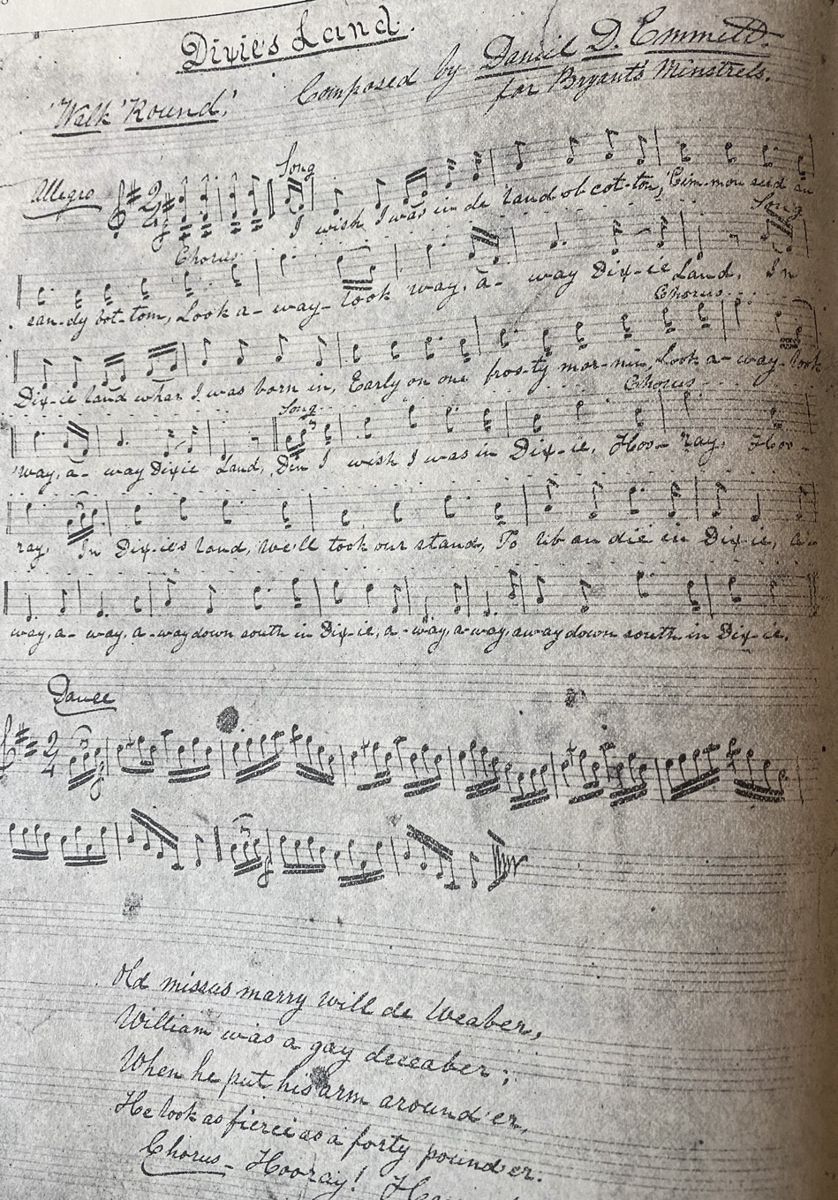 Dixie's Land.
'Walk 'Round,' Composed by Daniel D. Emmett.
for Bryant's Minstrels.
Allegro
Song
I wish I was in de land ob cot-ton, 'Cim-mon seed an
Chorus Song
san-dy bot-tom, Look a-way-look 'way, a-way Dix-ie Land. In
Chorus
Dix-ie land whar I was born in, Early on one fros-ty mor-nin, Look a-way-look
Song Chorus
'way, a-way Dixie Land. Den I wish I was in Dix-ie, Hoo-ray, Hoo-
ray, In Dix-ie's land, we'll took our stand, To lib an die in Dix-ie, a-
way, a-way, a-way down south in Dix-ie, a-way, a-way, away down south in Dix-ie.
Dance
Old missus marry will de Weaber,
William was a gay deceaber;
When he put his arm around'er,
He look as fierce as a forty pound'er.
Chorus - Hooray!